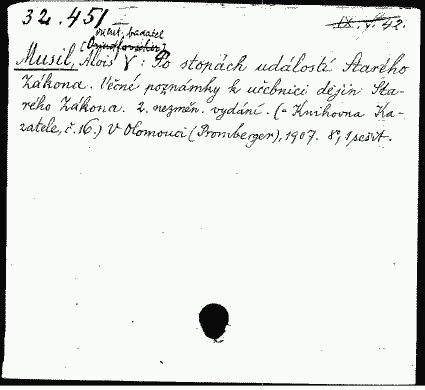 32.451
IX. V. 42.
orient. badatel
Musil, Alois V: Po stopách událostí Starého
Zákona. Věčné poznámky k učebnici dějin Sta-
rého Zákona. 2. nezměn. vydání. (= Knihovna Ka-
zatele, č. 16.) V Olomouci (Promberger), 1907. 8°, 1 sešit.